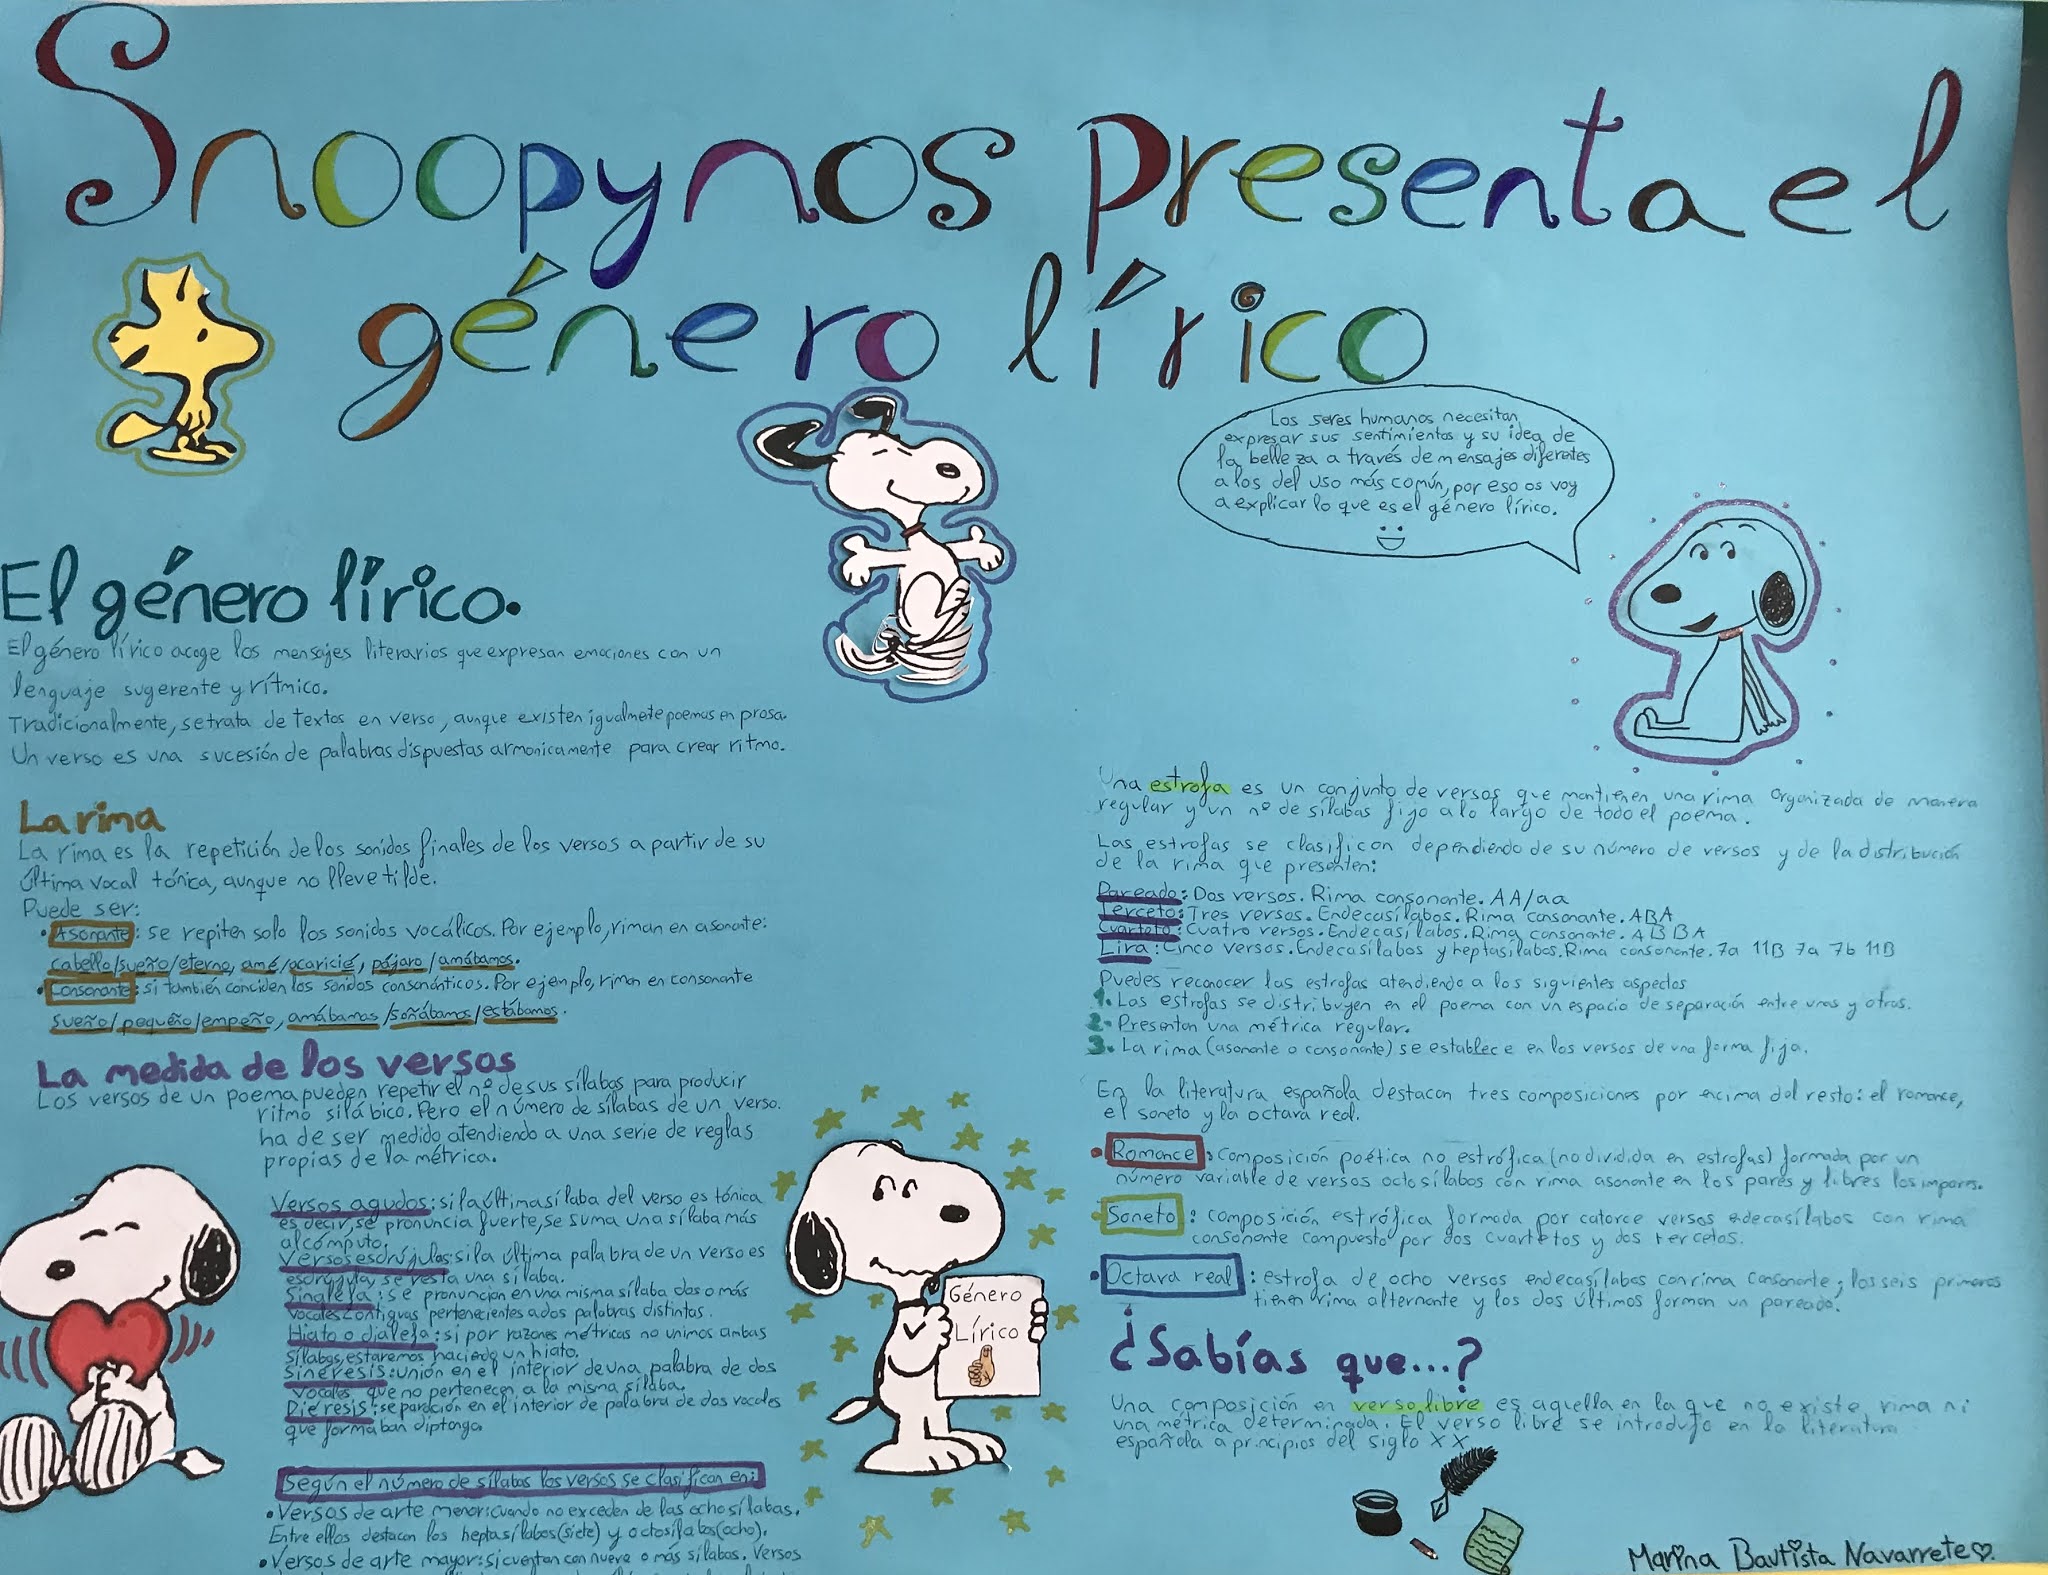 Snoopynos presenta el
género lírico
Los seres humanos necesitan
expresar sus sentimientos y su idea de
la belleza a través de mensajes diferentes
a los del uso más común, por eso os voy
a explicar lo que es el género lírico.
El género lírico.
El género lírico acoge los mensajes literarios que expresan emociones con un
lenguaje sugerente y rítmico.
Tradicionalmente, se trata de textos en verso, aunque existen igualmente poemas en prosa.
Un verso es una sucesión de palabras dispuestas armonicamente para crear ritmo.
La rima
La rima es la repetición de los sonidos finales de los versos a partir de su
última vocal tónica, aunque no lleve tilde.
Puede ser:
• Asonante: se repiten solo los sonidos vocálicos. Por ejemplo, riman en asonante:
cabello/sueño/eterno, amé/acaricié, pájaro/amábamos.
• Consonante: si también coinciden los sonidos consonánticos. Por ejemplo, riman en consonante
sueño/pequeño/empeño, amábamos/soñábamos/estábamos.
La medida de los versos
Los versos de un poema pueden repetir el nº de sus sílabas para producir
ritmo silábico. Pero el número de sílabas de un verso.
ha de ser medido atendiendo a una serie de reglas
propias de la métrica.
Versos agudos: si la última sílaba del verso es tónica
es decir, se pronuncia fuerte, se suma una sílaba más
al cómputo.
Versos esdrújulas: si la última palabra de un verso es
esdrújula, se resta una sílaba.
Sinalefa: se pronuncian en una misma sílaba dos o más
vocales contiguas pertenecientes a dos palabras distintas.
Hiato o dialefa: si por razones métricas no unimos ambas
sílabas, estaremos haciendo un hiato.
Sinéresis: unión en el interior de una palabra de dos
vocales que no pertenecen a la misma sílaba.
Dieresis: separación en el interior de palabra de dos vocales
que formaban diptongo.
Según el número de sílabas los versos se clasifican en:
• Versos de arte menor: cuando no exceden de las ocho sílabas.
Entre ellos destacan los heptasílabos (siete) y octosílabos (ocho).
• Versos de arte mayor: si cuentan con nueve o más sílabas. Versos
Género
Lírico
Una estrofa es un conjunto de versos que mantienen una rima organizada de manera
regular y un nº de sílabas fijo a lo largo de todo el poema.
Las estrofas se clasifican dependiendo de su número de versos y de la distribución
de la rima que presenten:
Pareado: Dos versos. Rima consonante. AA/aa
Terceto: Tres versos. Endecasílabos. Rima consonante. ABA
Cuarteto: Cuatro versos. Endecasílabos. Rima consonante. ABBA
Lira: Cinco versos. Endecasílabos y heptasílabos. Rima consonante. 7a 11B 7a 7b 11B
Puedes reconocer las estrofas atendiendo a los siguientes aspectos
1. Las estrofas se distribuyen en el poema con un espacio de separación entre unas y otras.
2. Presentan una métrica regular.
3. La rima (asonante o consonante) se establece en los versos de una forma fija.
En la literatura española destacan tres composiciones por encima del resto: el romance,
el soneto y la octava real.
• Romance: composición poética no estrófica (no dividida en estrofas) formada por un
número variable de versos octosílabos con rima asonante en los pares y libres los impares.
• Soneto: composición estrófica formada por catorce versos endecasílabos con rima
consonante compuesto por dos cuartetos y dos tercetos.
• Octava real: estrofa de ocho versos endecasílabos con rima consonante; los seis primeros
tienen rima alternante y los dos últimos forman un pareado.
¿Sabías que...?
Una composición en verso libre es aquella en la que no existe rima ni
una métrica determinada. El verso libre se introdujo en la literatura
española a principios del siglo XX.
Marina Bautista Navarrete